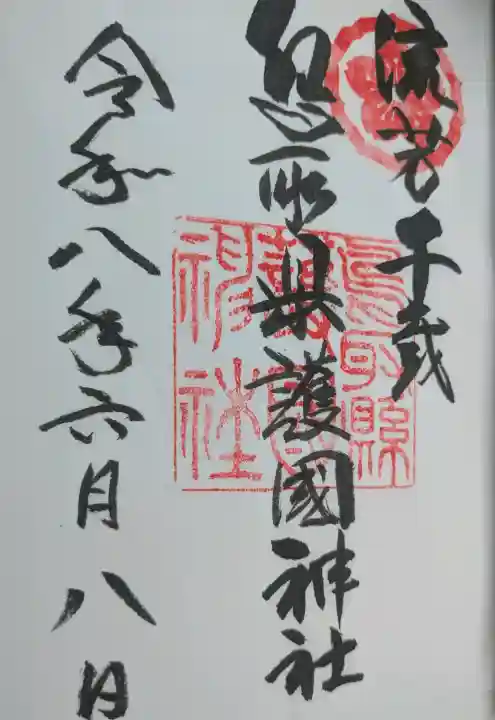 流芳千載
鳥取県護國神社
令和八年六月八日
鳥取縣
護國
神社